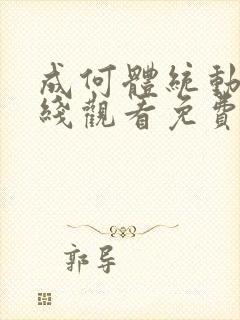 成何體統動
綫觀看免費
郭导